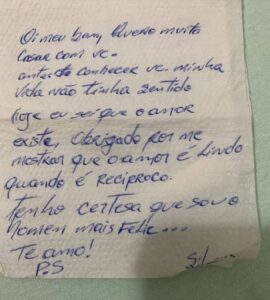 Oi meu bem, Quero muito
Casar com vc.
antes de conhecer vc. minha
vida não tinha sentido
hoje eu sei que o amor
existe, Obrigado por me
mostrar que o amor é Lindo
quando é Recíproco.
Tenho certesa que sou o
homem mais Feliz...
Te amo!
P.S